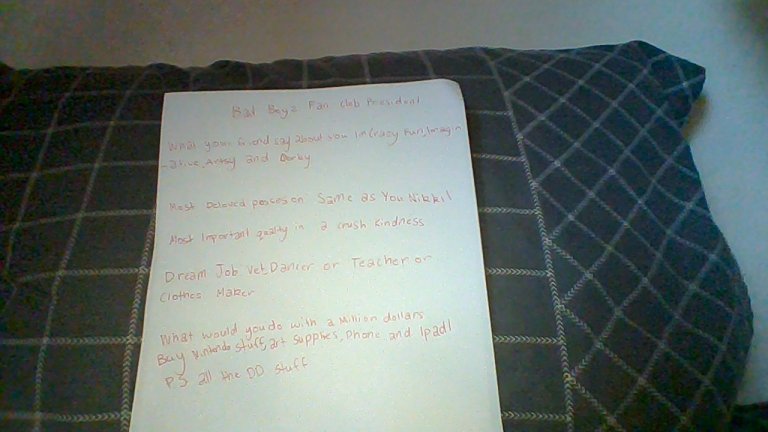 Bad Boyz Fan Club President
What your friend say about you Im Crazy Fun, Imagin
-ative, Artsy and Dorky
Most Beloved possesion Same as You Nikki!
Most Important quality in a crush Kindness
Dream Job. Vet, Dancer or Teacher or
Clothes Maker
What would you do with a Million dollars
Buy Nintendo stuff, art supplies, Phone and Ipad!
P.S all the DD stuff